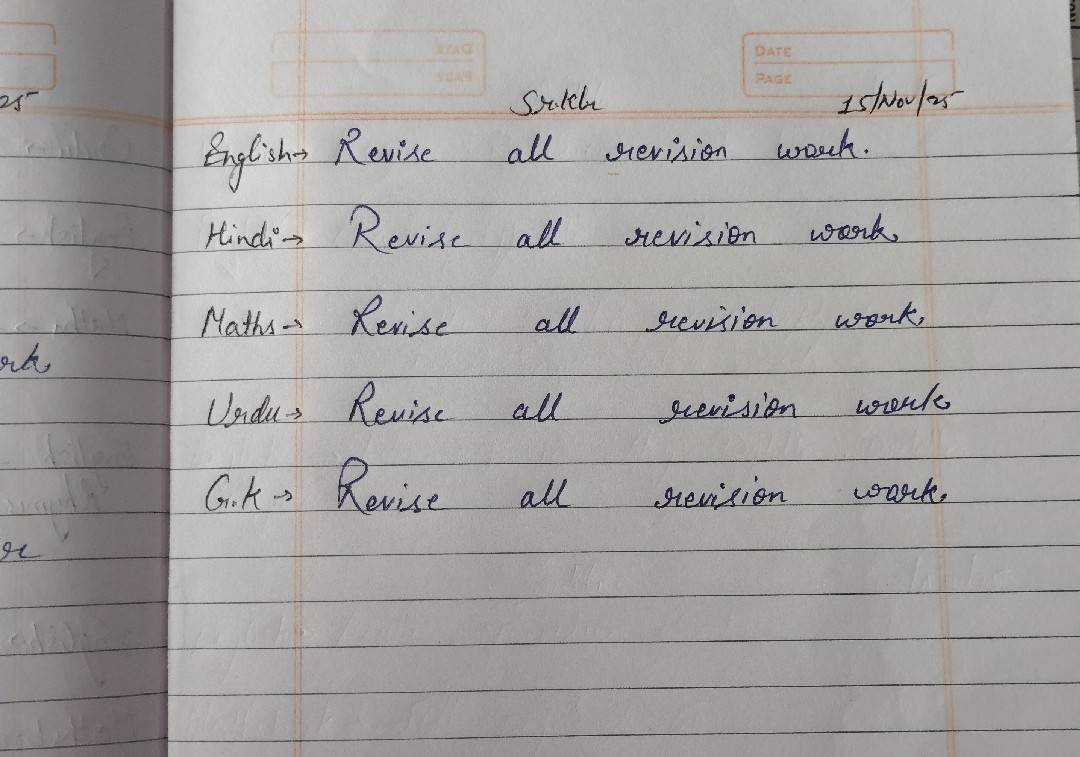 25
DATE
PAGE
15/Nov/25
English→ Revise all revision work.
Hindi→ Revise all revision work.
Maths→ Revise all revision work.
ork.
Urdu→ Revise all revision work
G.K→ Revise all revision work.